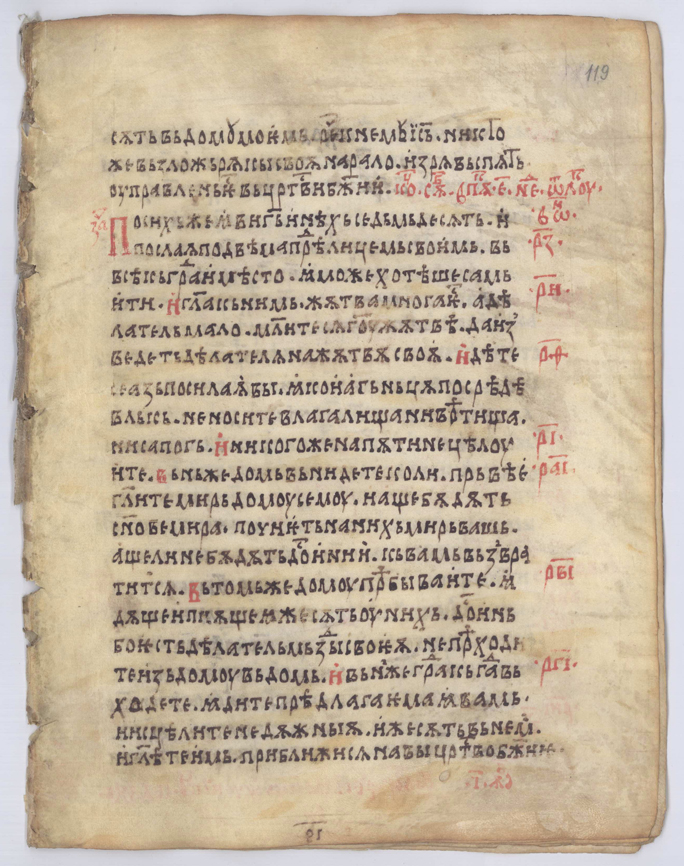 119
сѧть вь домꙋ моемь. рече к немꙋ іс҃ъ. никто
же вьзложь рѫкы своѧ на рало. и зрѧ вьспѧть.
оуправлень ѥ вь црⷭ҇тви бж҃ии.
По сихь же ꙗви гь҃ и инѣхь седьмь десѧть. и
посла ѧ по двѣма прѣⷣ лицемь своимь. вь
всѣкь граⷣ и мѣсто. ꙗможе хотѣше самь
ити. И гла҃ кь нимь. жѧтва многа ѥⷭ. а дѣ
латель мало. мл҃ите сѧ гоу҃ жѧтвѣ. да изⷣ
ведеть дѣлателѧ на жѧтвѫ своѫ. Идѣте
се азь посилаѫ вы. ꙗко агньцѧ посрѣдѣ
вльсь. не носите влагалища ни врѣтища.
ни сапогь. И никогоже на пѫти не цѣлоу
ите. Вь ньже домь вьнидете коли. прьвѣе
гл҃ите мирь домоу семоу. и аще бѫдѫте
сн҃ове мира. почиѥть на нихь мирь вашь.
аще ли не бѫдѫть дⷭ҇оини. кь вамь вьзвра
тить сѧ. Вь томьже домоу прѣбываите. ꙗ
дѫще и пиѫще ꙗже сѫть оу нихь. дⷭ҇оинь
бо ѥсть дѣлатель мьзⷣы своѥѧ. не прѣходи
те из домоу вь домь. И вь ньже граⷣ аще вь
ходете. ꙗдите прѣдлагаѥмаꙗ вамь.
и исцѣлите недѫжныѧ. иже сѫть вь немь.
и гл҃ѣте имь. приближи сѧ на вы црⷭ҇тво бж҃ие.
·р҃з·
·р҃и·
р҃ѳ
·р҃і·
р҃аі
р҃ві
·р҃гі·